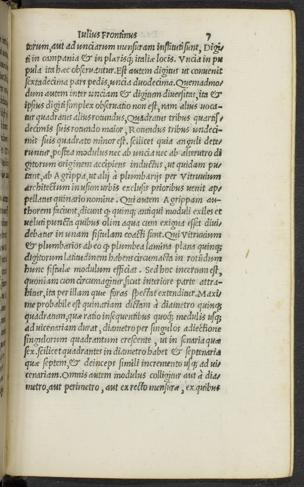 Iulius Frontinus 7
torum, aut ad unciarum mensuram instituti sunt, Digi-
ti in campania & in plerisq; italiæ locis. Vncia in pu
pula ita hæc observatur. Est autem digitus ut convenit
sextadecima pars pedis, uncia duodecima. Quemadmo
dum autem inter unciam & digitum diversitas, ita &
ipsius digiti simplex observatio non est, nam alius voca-
tur quadratus alius rotundus. Quadratus tribus quartis
decimis suis rotundo maior, Rotundus tribus undeci-
mis suis quadrato minor est. scilicet quia anguli dete-
runtur, postea modulus nec ab uncia nec ab alterutro di
gitorum originem accipiens inductus, ut quidam pu-
tant, ab Agrippa, ut alij à plumbarijs per Vitruvium
architectum in usum urbis exclusis prioribus venit ap-
pellatus quinario nomine. Qui autem Agrippam au-
thorem faciunt, dicunt q quinq; antiqui moduli exiles et
velut puncta quibus olim aqua cum exigua esset divi-
debatur in unam fistulam coacti sunt. Qui Vitruvium
& plumbarios ab eo q plumbea lamina plana quinq;
digitorum latitudinem habens circumacta in rotundum
hunc fistulæ modulum efficiat. Sed hoc incertum est,
quoniam cum circumagitur, sicut interiore parte attra-
hitur, ita per illam quæ foras spectat extenditur. Maxi
me probabile est quinariam dictam à diametro quinq;
quadrantum, quæ ratio in sequentibus quoq; modulis usq;
ad vicenariam durat, diametro per singulos adiectione
singulorum quadrantum crescente, ut in senaria quæ
sex scilicet quadrantes in diametro habet & septenaria
quæ septem, & deinceps simili incremento usq; ad vi-
cenariam. Omnis autem modulus colligitur aut à dia-
metro, aut perimetro, aut ex recto mensuræ, ex quibus